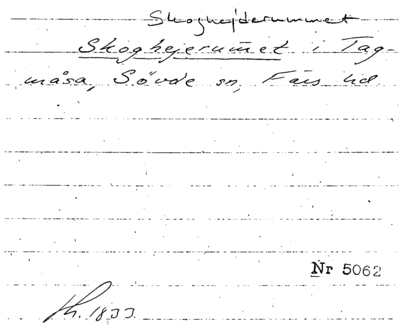 Skoghejderummet
Skoghejerum̅et i Tag-
måsa, Sövde sn, Färs hd
Nr 5062
1833.